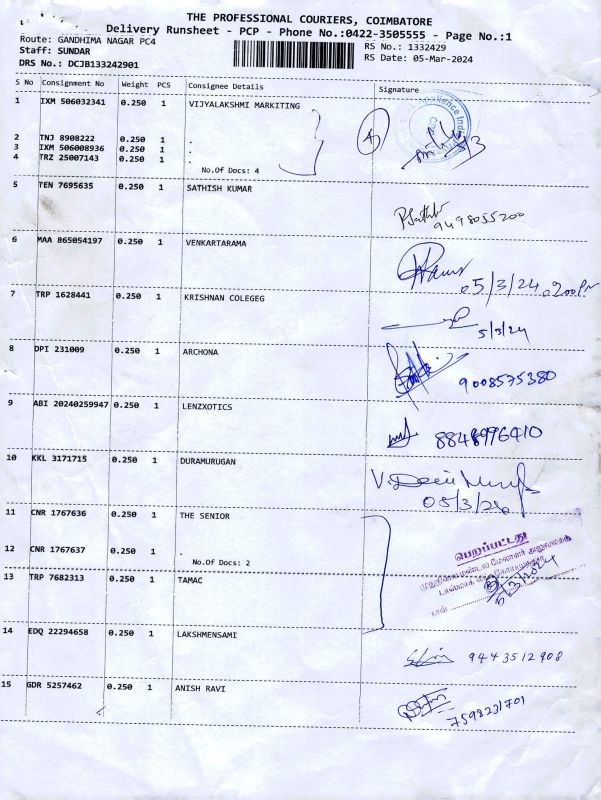 THE PROFESSIONAL COURIERS, COIMBATORE
Delivery Runsheet - PCP - Phone No.:0422-3505555 - Page No.:1
Route: GANDHIMA NAGAR PC4
RS No.: 1332429
Staff: SUNDAR
RS Date: 05-Mar-2024
DRS No.: DCJB133242901
S No Consignment No Weight PCS Consignee Details Signature
1 IXM 506032341 0.250 1 VIJYALAKSHMI MARKITING
2 TNJ 8908222 0.250 1 .
3 IXM 506008936 0.250 1 .
4 TRZ 25007143 0.250 1 .
No.Of Docs: 4
5 TEN 7695635 0.250 1 SATHISH KUMAR
9498055200
6 MAA 865054197 0.250 1 VENKARTARAMA
05/3/24
7 TRP 1628441 0.250 1 KRISHNAN COLEGEG
5/3/24
8 DPI 231009 0.250 1 ARCHONA
9008575380
9 ABI 20240259947 0.250 1 LENZXOTICS
10 KKL 3171715 0.250 1 DURAMURUGAN
05/3/24
11 CNR 1767636 0.250 1 THE SENIOR
பெறப்பட்டது
12 CNR 1767637 0.250 1 .
No.Of Docs: 2
13 TRP 7682313 0.250 1 TAMAC
14 EDQ 22294658 0.250 1 LAKSHMENSAMI
9443512908
15 GDR 5257462 0.250 1 ANISH RAVI
7598231701